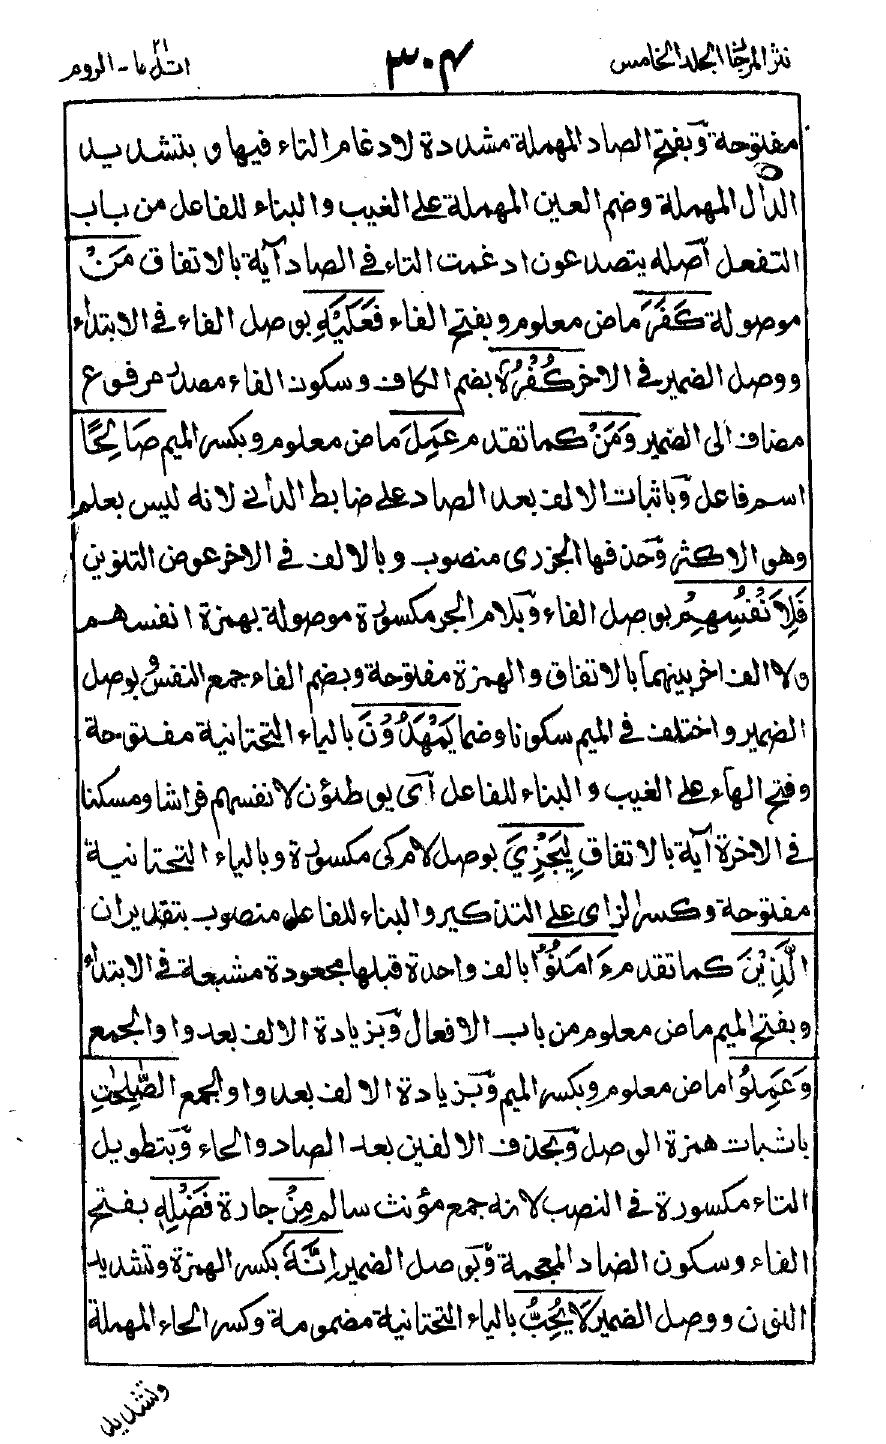 نثر المرجان المجلد الخامس
٣٠٤
اتل ما ٢١ - الروم
مفتوحة وَبفتح الصاد المهملة مشددة لادغام التاء فيها و بتشديد
الدال المهملة وضم العين المهملة على الغيب والبناء للفاعل من باب
التفعل أصله يتصدعون ادغمت التاء في الصاد آية بالاتفاق مَنْ
موصولة كَفَرَ ماض معلوم وبفتح الفاء فَعَلَيْهِ بوصل الفاء في الابتداء
ووصل الضمير في الاخر كُفْرُهُ بضم الكاف وسكون الفاء مصدر مرفوع
مضاف الى الضمير وَمَنْ كما تقدم عَمِلَ ماض معلوم وبكسر الميم صَالِحًا
اسم فاعل وَباثبات الالف بعد الصاد على ضابط الداني لانه ليس بعلم
وهو الاكثر وَحذفها الجزري منصوب وبالالف في الاخر عوض التنوين
فَلِاَنْفُسِهِمْ بوصل الفاء وَبلام الجر مكسورة موصولة بهمزة انفسهم
ولا الف اخر بينهما بالاتفاق والهمزة مفتوحة وبضم الفاء جمع النفس وبوصل
الضمير واختلف في الميم سكونا وضما يَمْهَدُوْنَ بالياء التحتانية مفتوحة
وفتح الهاء على الغيب والبناء للفاعل أي يوطئون لانفسهم فراشا ومسكنا
في الاخرة آية بالاتفاق لِيَجْزِيَ بوصل لام كى مكسورة وبالياء التحتانية
مفتوحة وكسر الزاى على التذكير والبناء للفاعل منصوب بتقدير ان
الَّذِيْنَ كما تقدم ءَامَنُوْا بالف واحدة قبلها مجعودة مشبعة في الابتداء
وبفتح الميم ماض معلوم من باب الافعال وَبزيادة الالف بعد واو الجمع
وَعَمِلُوا ماض معلوم وبكسر الميم وَبزيادة الالف بعد واو الجمع الصّٰلِحٰتِ
باثبات همزة الوصل وَبحذف الالفين بعد الصاد والحاء وَبتطويل
التاء مكسورة في النصب لانه جمع مؤنث سالم مِنْ جارة فَضْلِهٖ بفتح
الفاء وسكون الضاد المعجمة وَبوصل الضمير اِنَّهٗ بكسر الهمزة وتشديد
النون ووصل الضمير لَا يُحِبُّ بالياء التحتانية مضمومة وكسر الحاء المهملة
وتشديد